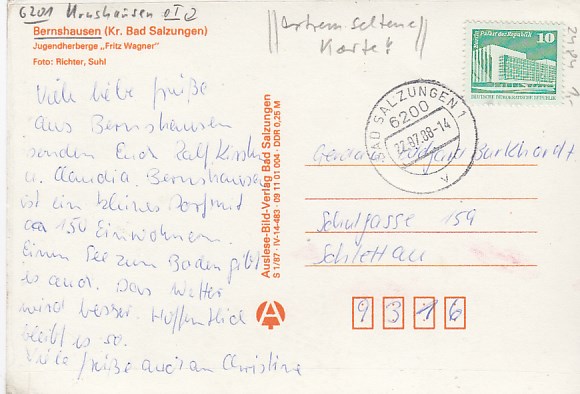 6201 Urnshausen OT 2
Bernshausen (Kr. Bad Salzungen)
Jugendherberge „Fritz Wagner"
Foto: Richter, Suhl
Viele liebe Grüße
aus Bernshausen
senden Euch Ralf, Kirsten
u. Claudia. Bernshausen
ist ein kleines Dorf mit
ca 150 Einwohnern.
Einen See zum Baden gibt
es auch. Das Wetter
wird besser. Hoffentlich
bleibt es so.
Viele Grüße auch an Christine
Auslese-Bild-Verlag Bad Salzungen
S 1/87 · IV-14-483 · 09 11 01 004 · DDR 0,25 M
extrem seltene
Karte!
Palast der Republik 10
DEUTSCHE DEMOKRATISCHE REPUBLIK
2484 1,-
BAD SALZUNGEN 1
6200
22.87.88-14
v
Burkhardt
Schulgasse 154
Schlettau
9316